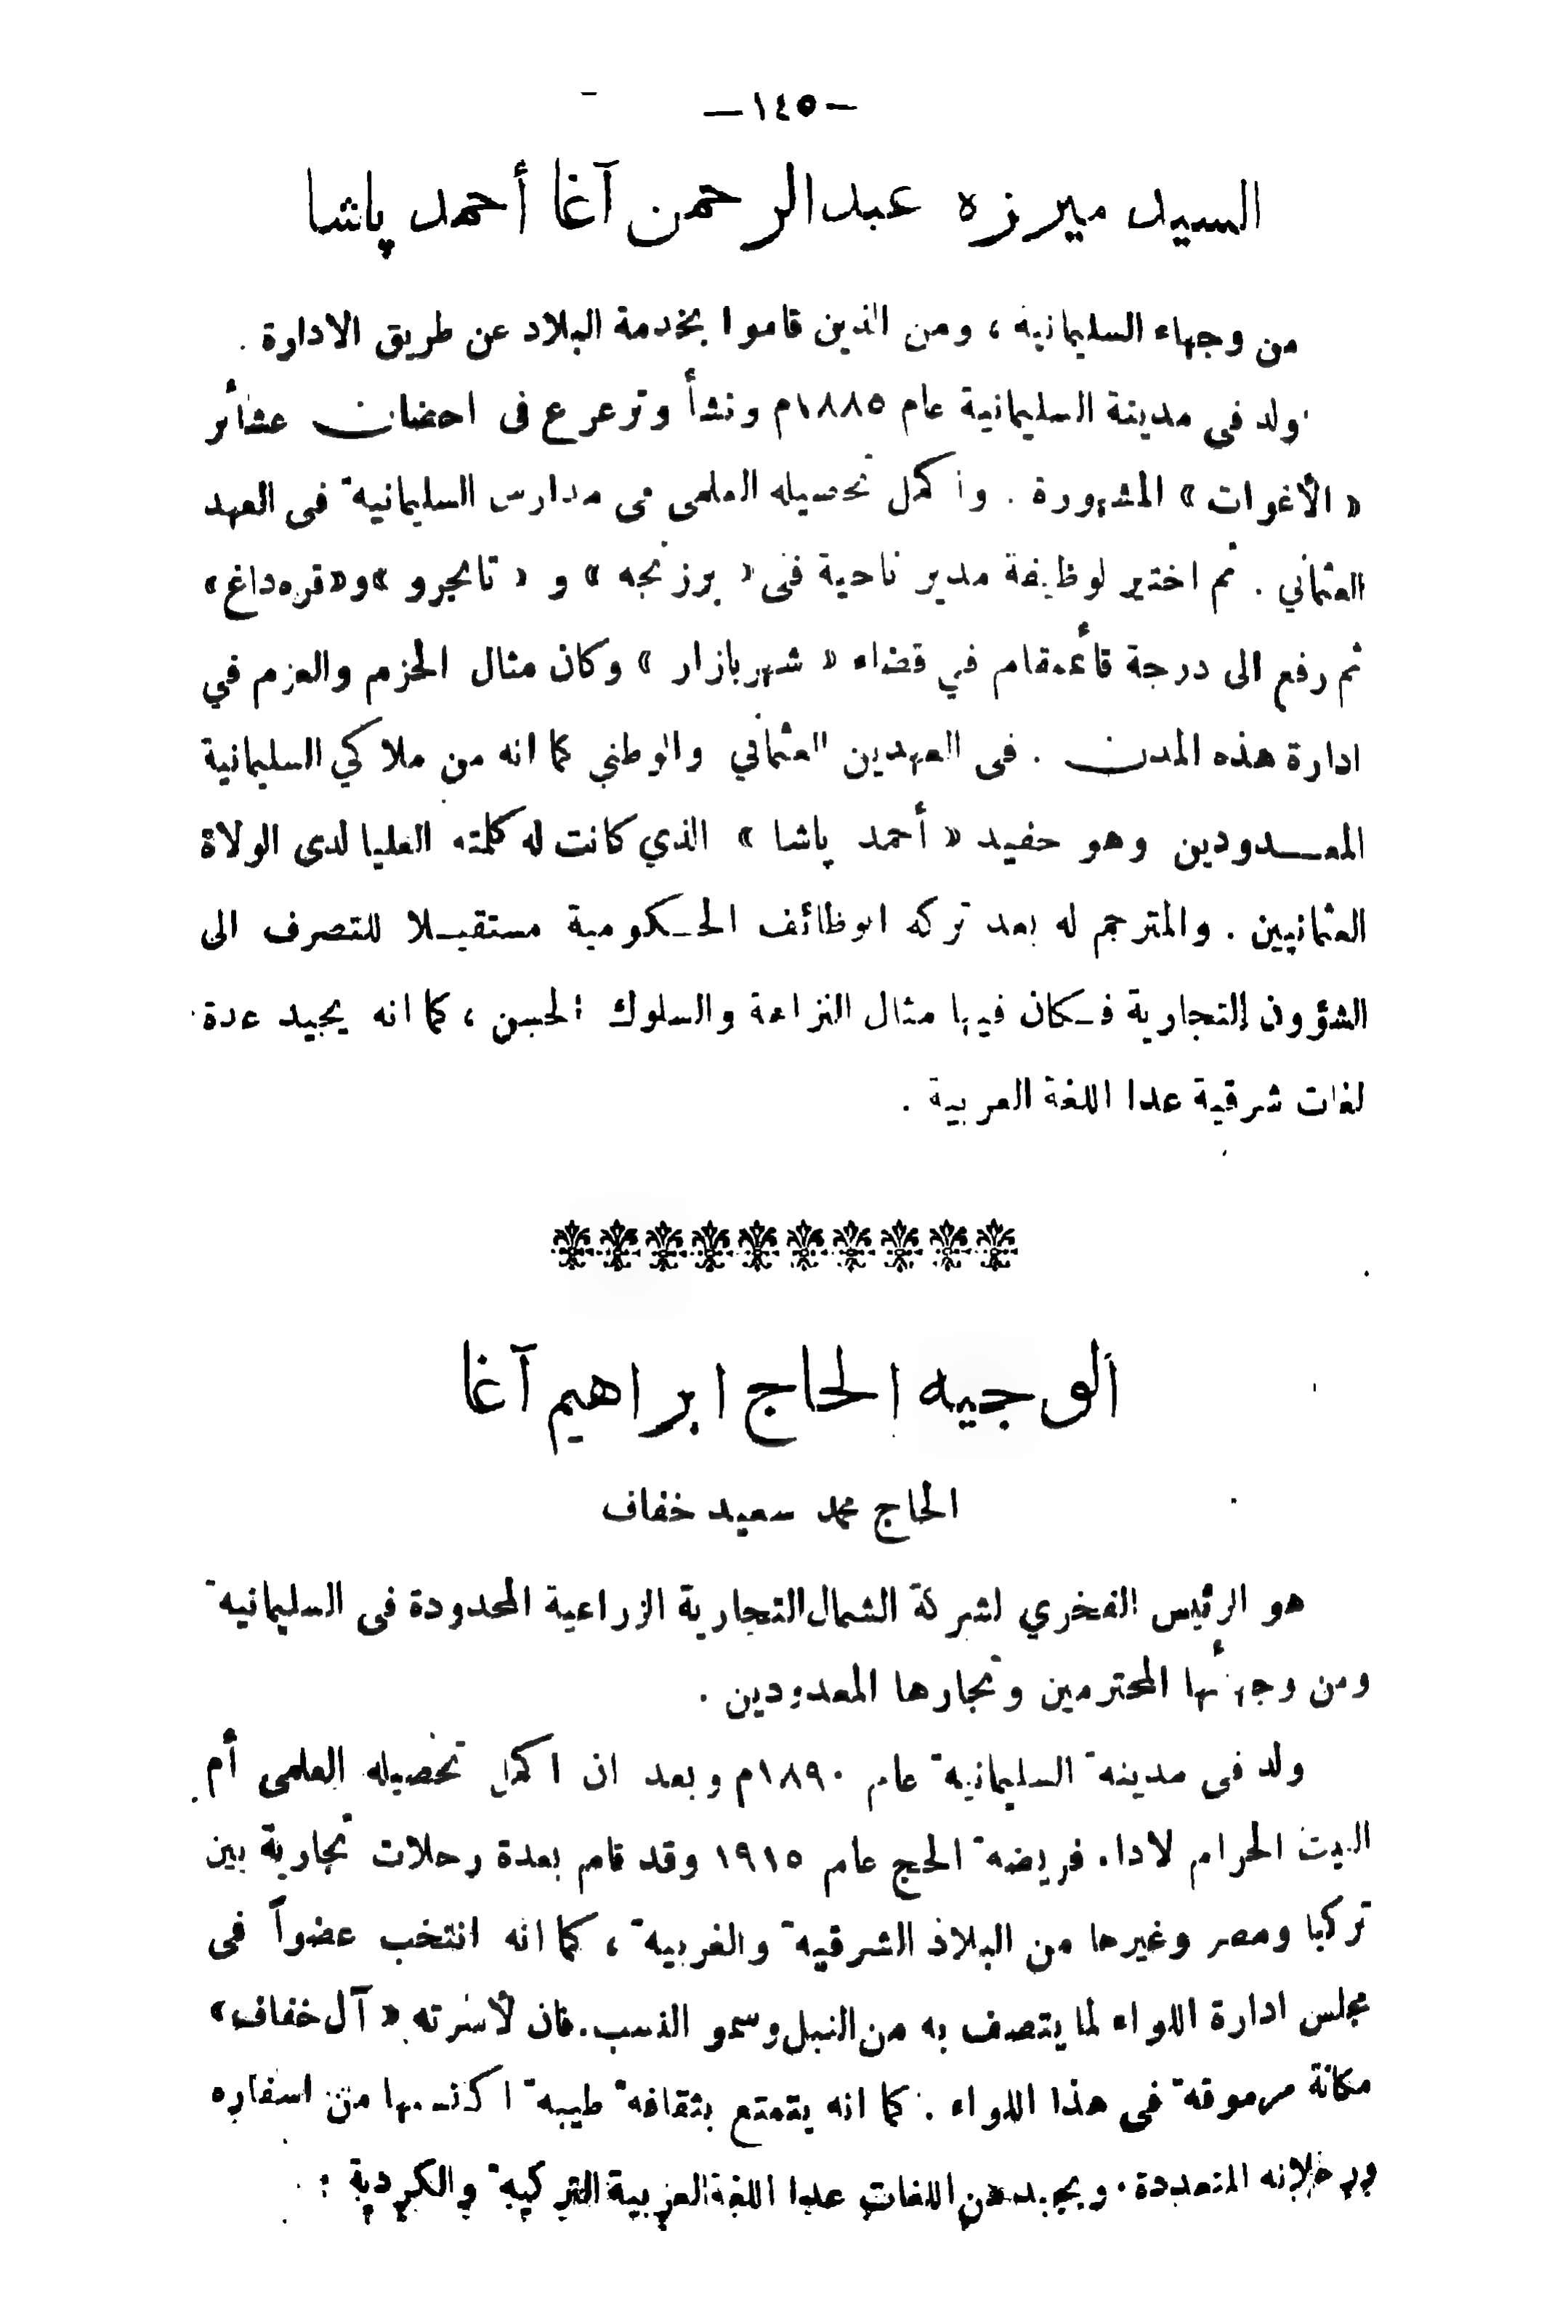 —١٤٥—
السيد ميرزه عبدالرحمن آغا أحمد پاشا
من وجهاء السليمانية ، ومن الذين قاموا بخدمة البلاد عن طريق الادارة .
ولد في مدينة السليمانية عام ١٨٨٥م ونشأ وترعرع في احضان عشائر
« الأغوات » المشهورة . واكمل تحصيله العلمي في مدارس السليمانية في العهد
العثماني . ثم اختير لوظيفة مدير ناحية في « برزنجه » و « تانجرو » و«قره‌داغ»
ثم رفع الى درجة قائمقام في قضاء « شهربازار » وكان مثال الحزم والعزم في
ادارة هذه المدن . في العهدين العثماني والوطني كما انه من ملاكي السليمانية
المعدودين وهو حفيد « أحمد پاشا » الذي كانت له كلمته العليا لدى الولاة
العثمانيين . والمترجم له بعد تركه الوظائف الحكومية مستقيلا للتصرف الى
الشؤون التجارية فكان فيها مثال النزاهة والسلوك الحسن ، كما انه يجيد عدة
لغات شرقية عدا اللغة العربية .
ألوجيه الحاج ابراهيم آغا
الحاج محمد سعيد خفاف
هو الرئيس الفخري لشركة الشمال التجارية الزراعية المحدودة في السليمانية
ومن وجهائها المحترمين وتجارها المعدودين .
ولد في مدينة السليمانية عام ١٨٩٠م وبعد ان اكمل تحصيله العلمي أم
البيت الحرام لاداء فريضة الحج عام ١٩١٥ وقد قام بعدة رحلات تجارية بين
تركيا ومصر وغيرها من البلاد الشرقية والغربية ، كما انه انتخب عضواً في
مجلس ادارة اللواء لما يتصف به من النبل وسمو النسب. فان لأسرته « آل خفاف»
مكانة مرموقة في هذا اللواء . كما انه يتمتع بثقافة طيبة اكتسبها من اسفاره
ورحلاته المتعددة. ويجيد من اللغات عدا اللغة العربية التركية والكردية .